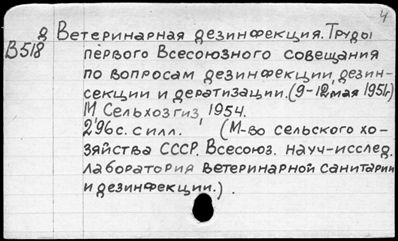 4
д Ветеринарная дезинфекция. Труды
В518 первого Всесоюзного совещания
по вопросам дезинфекции, дезин-
секции и дератизации. (9-12 мая 1951г.)
М, Сельхозгиз, 1954.
296с. с илл. (М-во сельского хо-
зяйства СССР. Всесоюз. науч-исслед.
лаборатория ветеринарной санитарии
и дезинфекции.).